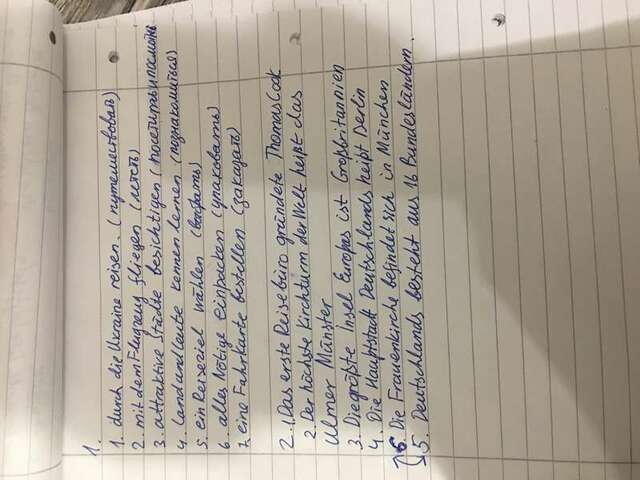 1.
1. durch die Ukraine reisen. (путешествовать)
2. mit dem Flugzeug fliegen (лететь)
3. attraktive Städte besichtigen (посетить и посмотреть
4. Land und leute kennen lernen (познакомиться)
5. ein Reiseziel wählen (выбрать)
6. alles Nötige einpacken (упаковать)
7. eine Fahrkarte bestellen (заказать)
2. 1. Das erste Reisebüro gründete Thomas Cook
2. Der höchste Kirchturm der Welt heißt das
Ulmer Münster
3. Die größte Insel Europas ist Großbritannien
4. Die Hauptstadt Deutschlands heißt Berlin
6. Die Frauenkirche befindet sich in München
5. Deutschlands besteht aus 16 Bundesländern.